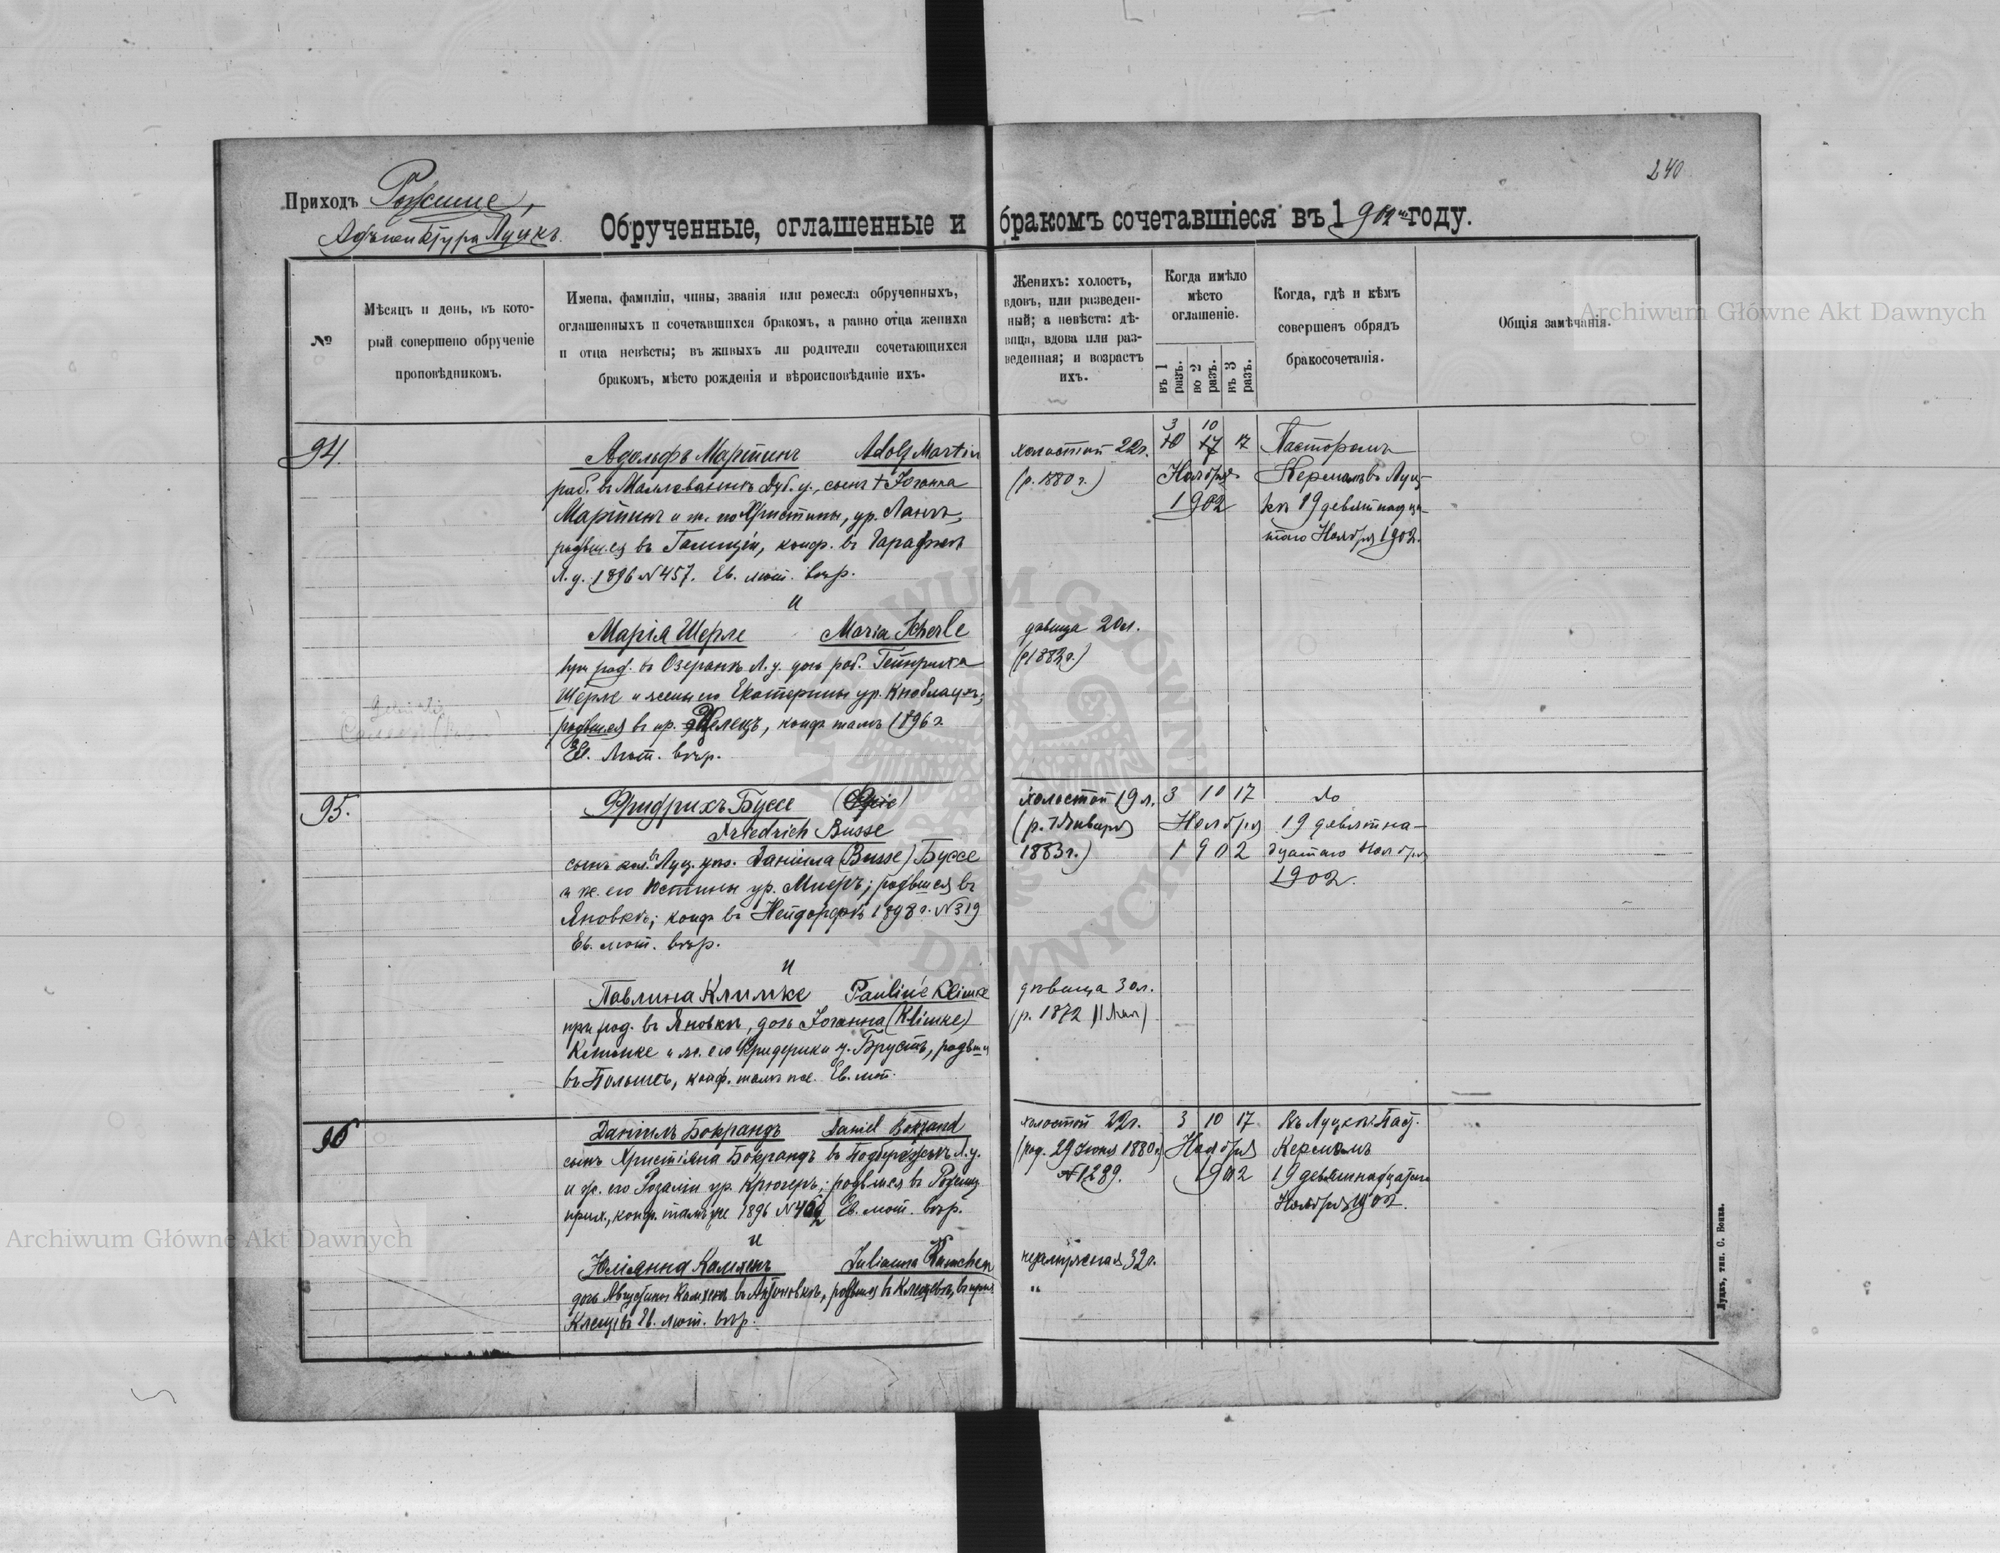 240
Приходъ Рожище,
Адъюнктура Луцкъ.
Обрученные, оглашенные и бракомъ сочетавшіеся въ 1902 году.
№
Мѣсяцъ и день, въ кото-
рый совершено обрученіе
проповѣдникомъ.
Имена, фамиліи, чины, званія или ремесла обрученныхъ,
оглашенныхъ и сочетавшихся бракомъ, а равно отца жениха
и отца невѣсты; въ живыхъ ли родители сочетающихся
бракомъ, мѣсто рожденія и вѣроисповѣданіе ихъ.
Женихъ: холостъ,
вдовъ, или разведен-
ный; а невѣста: дѣ-
вица, вдова или раз-
веденная; и возрастъ
ихъ.
Когда имѣло
мѣсто
оглашеніе.
въ 1 разъ.
во 2 разъ.
въ 3 разъ.
Когда, гдѣ и кѣмъ
совершенъ обрядъ
бракосочетанія.
Общія замѣчанія.
94.
Адольфъ Мартинъ Adolf Martin
раб. въ Дуб. у., сынъ † Іоганна
Мартинъ и ж. Христины, ур. Лангъ,
родвшся въ Галиціи, конф. въ
Л. у. 1896 № 457. Ев. лют. вѣр.
и
Марія Шерле Maria Scherle
при род. въ Озеранѣ Л. у. дочь раб. Гейнриха
Шерле и жены его Екатерины ур. Кноблаухъ,
родвшаяся въ конф. тамъ 1896 г.
Ев. Лют. вѣр.
холостой 22 г.
(р. 1880 г.)
дѣвица 20 л.
(р. 1882 г.)
3 10
10 17 17
Ноября
1902
Пасторомъ
Керммъ въ Луц-
кѣ 19 девятнадца-
таго Ноября 1902.
95.
Фридрихъ Буссе
Friedrich Busse
сынъ кол. въ Луц. у. Даніила (Busse) Буссе
и ж. его Юстины ур. родвшся въ
Яновкѣ; конф. въ Нейдорфѣ 1898 г. № 319
Ев. лют. вѣр.
и
Павлина Климке Pauline Klimke
при род. въ Яновкѣ, дочь Іоганна (Klimke)
Климке и ж. его Фридерики у. Брустъ, родвш.
въ Польшѣ, конф. тамъ же. Ев. лют.
холостой 19 л.
(р. 7 Января
1883 г.)
дѣвица 30 л.
(р. 1872 11 Мая)
3 10 17
Ноября
1902
до
19 девятна-
дцатаго Ноября
1902.
96
Даніилъ Бокрандъ Daniel Bokrand
сынъ Христіана Бокрандъ въ Л. у.
и ж. его Розаліи ур. Крюгеръ; родвшся въ
прих., конф. тамъ же 1896 № Ев. лют. вѣр.
и
Юліанна Камхенъ Julianna Kamchen
дочь Августины Камхенъ въ Антоновкѣ,
Ев. лют. вѣр.
холостой 22 г.
(род. 29 Іюня 1880 г.)
№ 1289.
незамужняя 32 г.
"
3 10 17
Ноября
1902
Въ Луцкѣ Паст.
Керммъ
19 девятнадцатаго
Ноября 1902.
Луцкъ, тип. С. Бонка.
Archiwum Główne Akt Dawnych
Archiwum Główne Akt Dawnych
ARCHIWUM GŁÓWNE AKT DAWNYCH